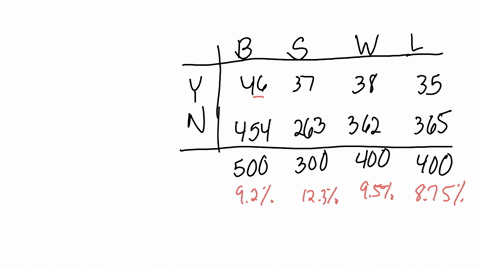 B S W L
Y 46 37 38 35
N 454 263 362 365
500 300 400 400
9.2% 12.3% 9.5% 8.75%